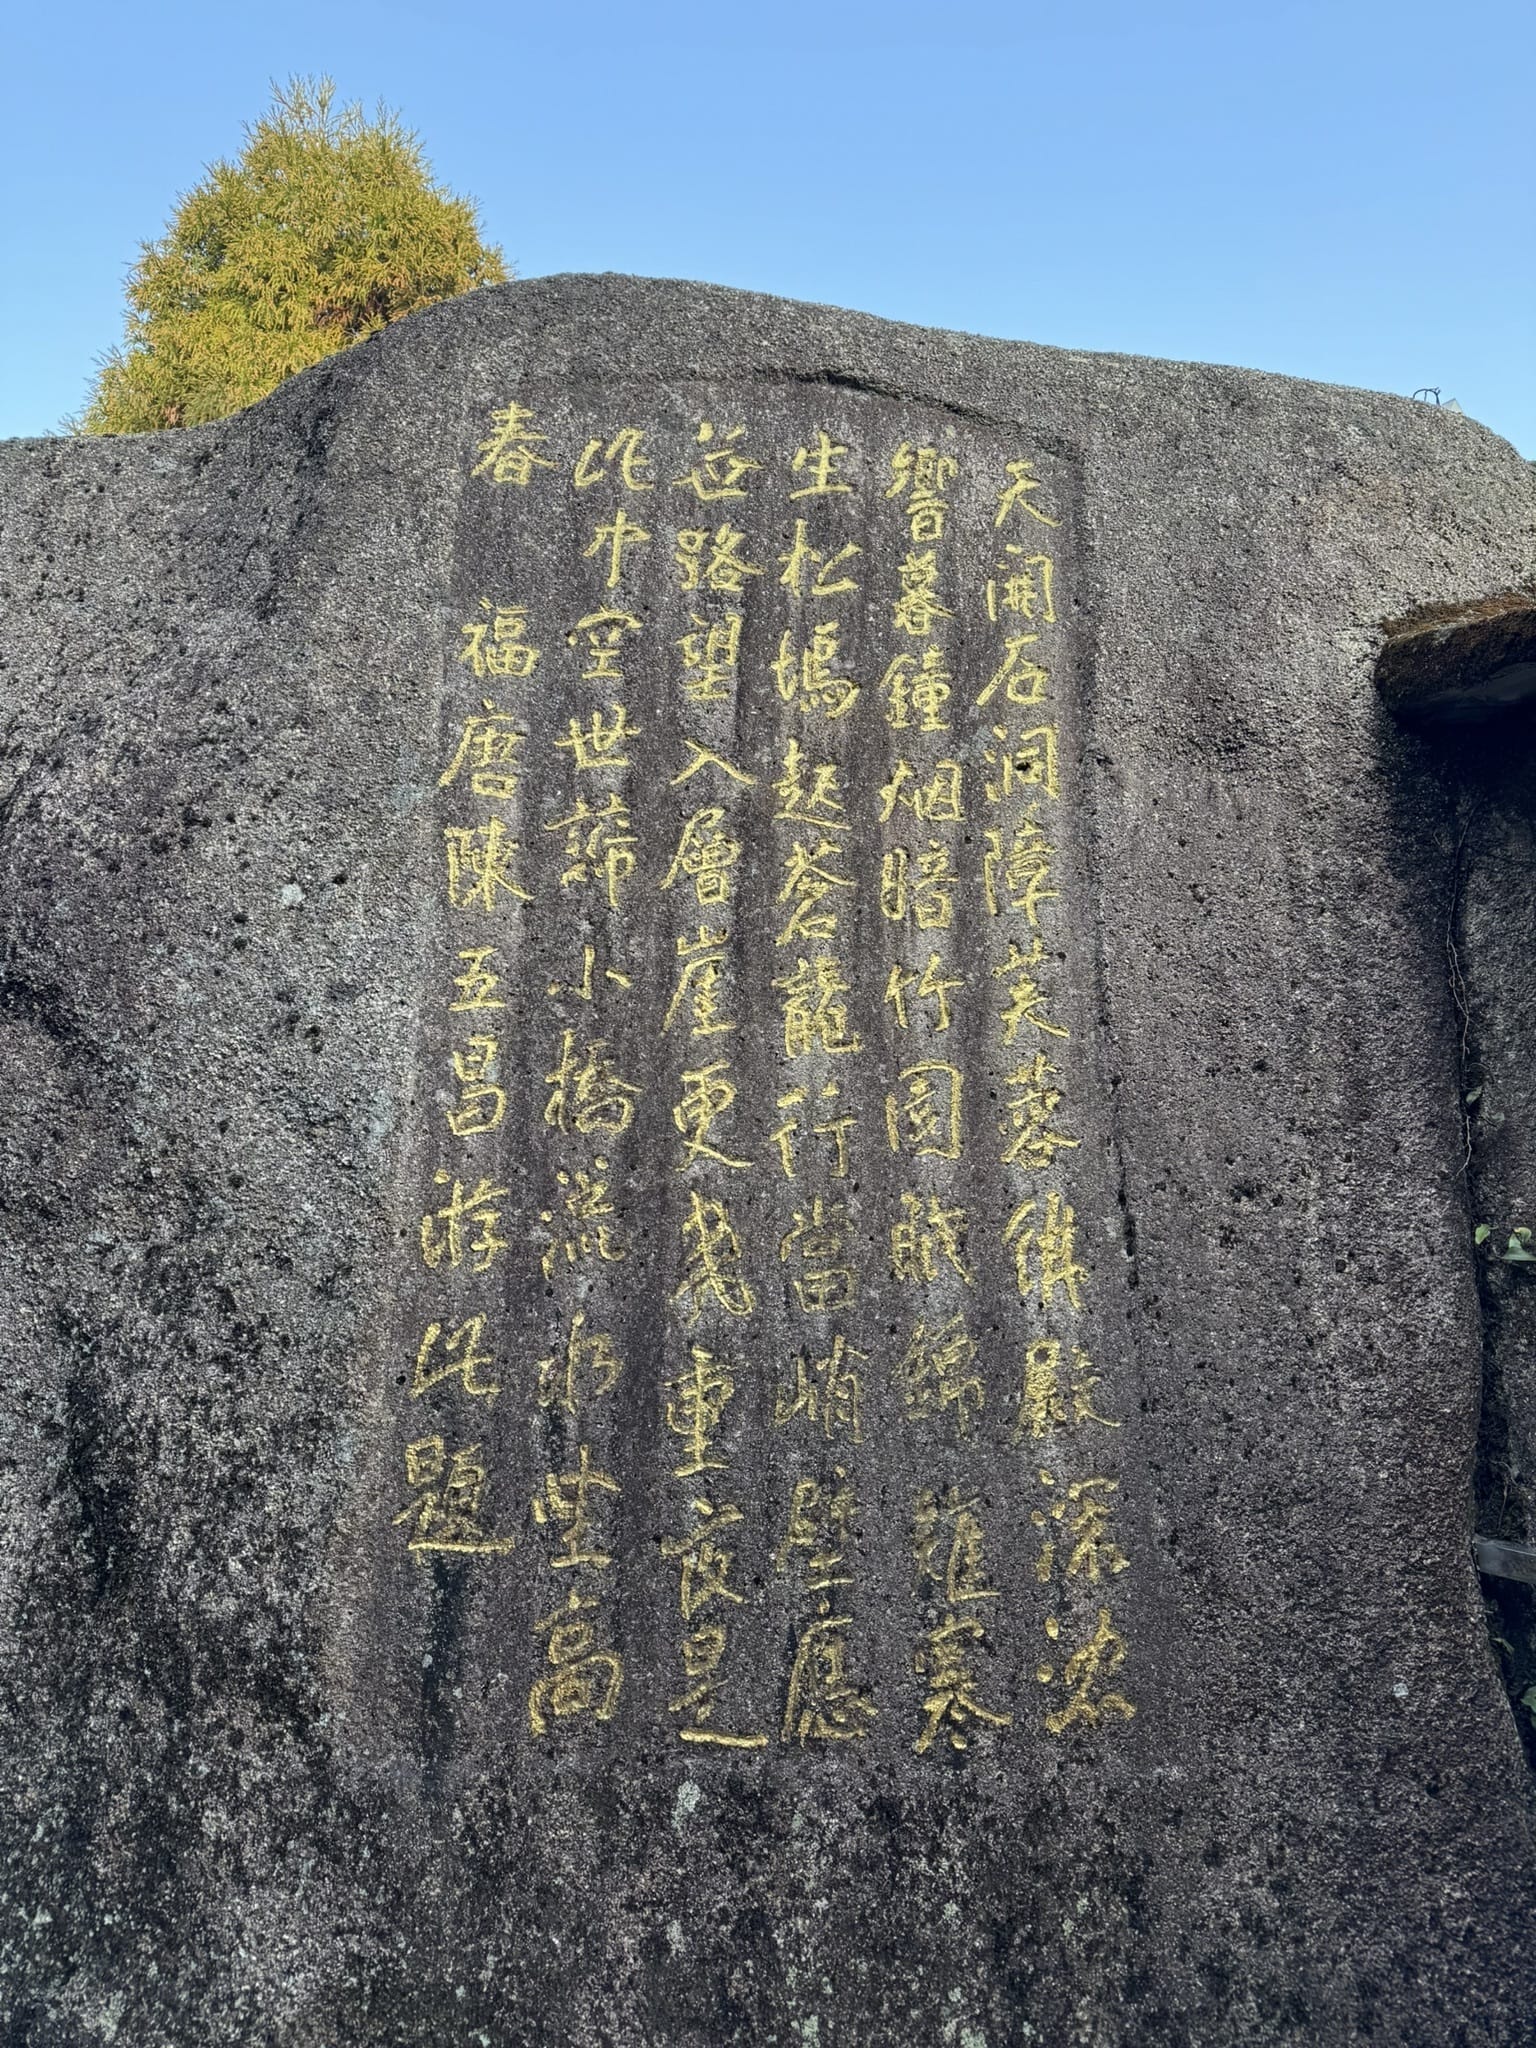 天開石洞障芙蓉佛殿深
響暮鐘烟暗竹園眠錦籜寒
生松塢起蒼龍行當峭壁應
無路望入層崖更幾重良是
此中空世諦小橋流水坐高
春 福唐陳五昌游此題